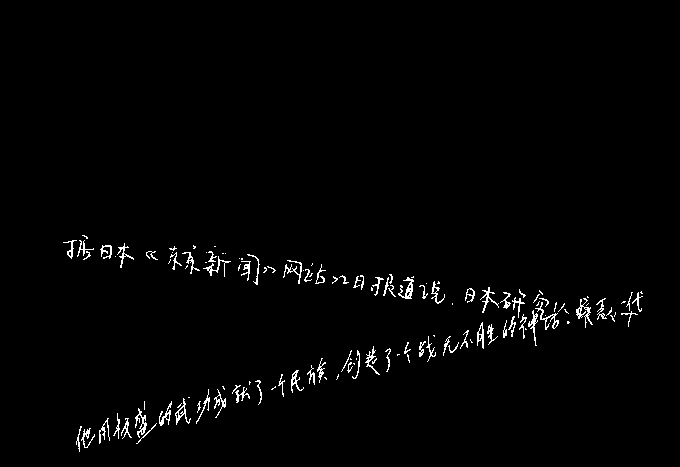 据日本《东京新闻》网站22日报道说，日本研究
他用极盛的武功成就了一个民族，创造了一个战无不胜的神话。